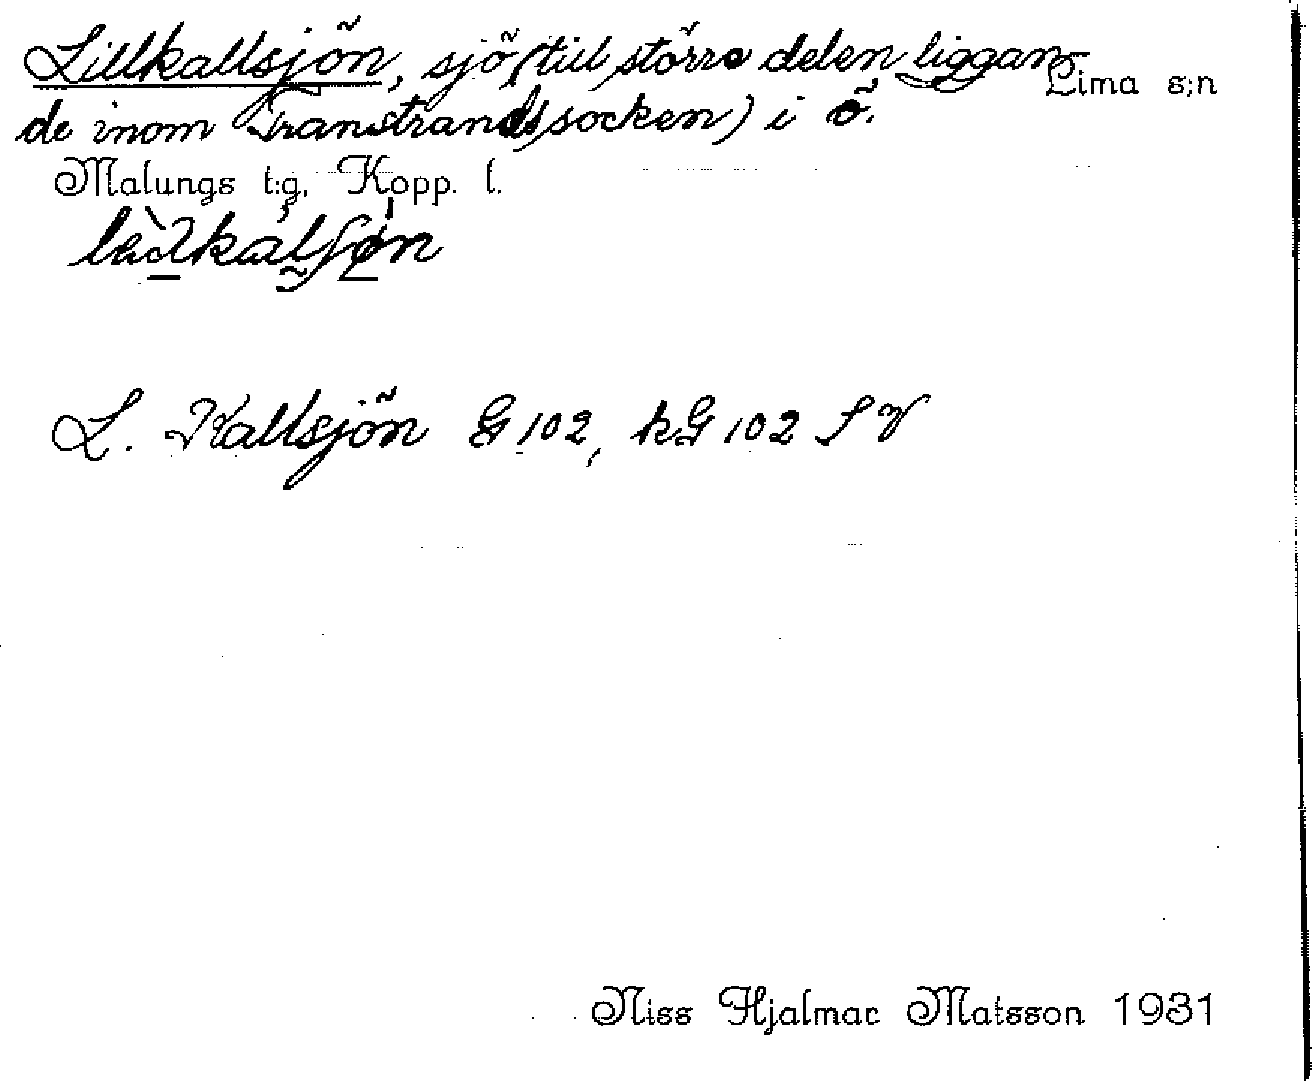 Lillkallsjön, sjö (till större delen liggan-
Lima s:n
de inom Transtrands socken) i ö.
Malungs t:g, Kopp. l.
L. Kallsjön G 102, kG 102 SV
Niss Hjalmar Matsson 1931